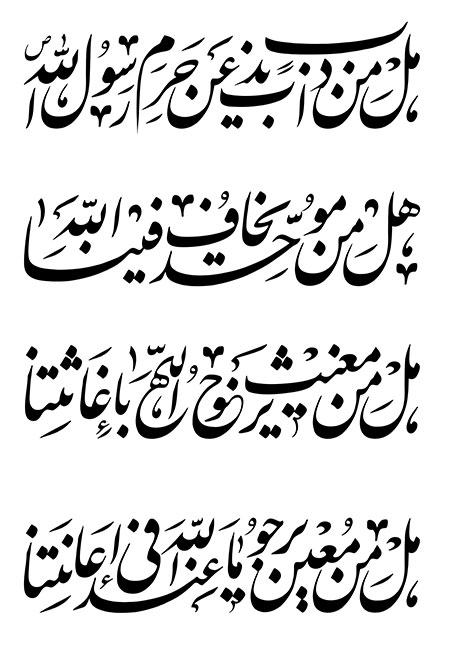 هل من ذابٍ یذب عن حرم رسول الله ص
هل من موحد یخاف الله فینا
هل من مغیث یرجو الله باغاثتنا
هل من معین یرجو ما عند الله فی إعانتنا